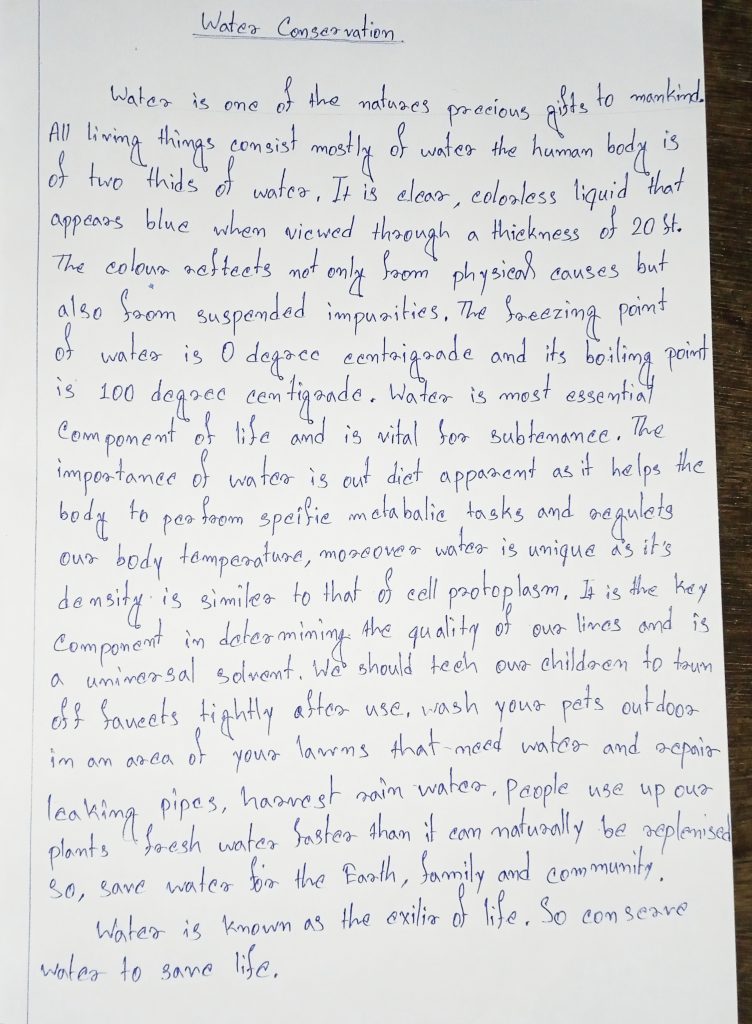 Water Conservation
Water is one of the natures precious gifts to mankind.
All living things consist mostly of water the human body is
of two thids of water. It is clear, colorless liquid that
appears blue when viewed through a thickness of 20 ft.
The colour reftects not only from physical causes but
also from suspended impurities. The freezing point
of water is 0 degree centrigrade and its boiling point
is 100 degree centigrade. Water is most essential
Component of life and is vital for subtenance. The
importance of water is out dict apparent as it helps the
body to perfrom speific metabalic tasks and regulets
our body temperature, moreover water is unique as it's
density is similer to that of cell protoplasm. It is the key
Component in determining the quality of our lives and is
a universal solvent. We should teeh our children to trun
off faucets tightly after use, wash your pets outdoor
in an area of your lawns that need water and repair
leaking pipes, harvest rain water. People use up our
plants fresh water faster than it can naturally be replenised
So, save water for the Earth, family and community.
Water is known as the exilir of life. So conserve
water to save life.